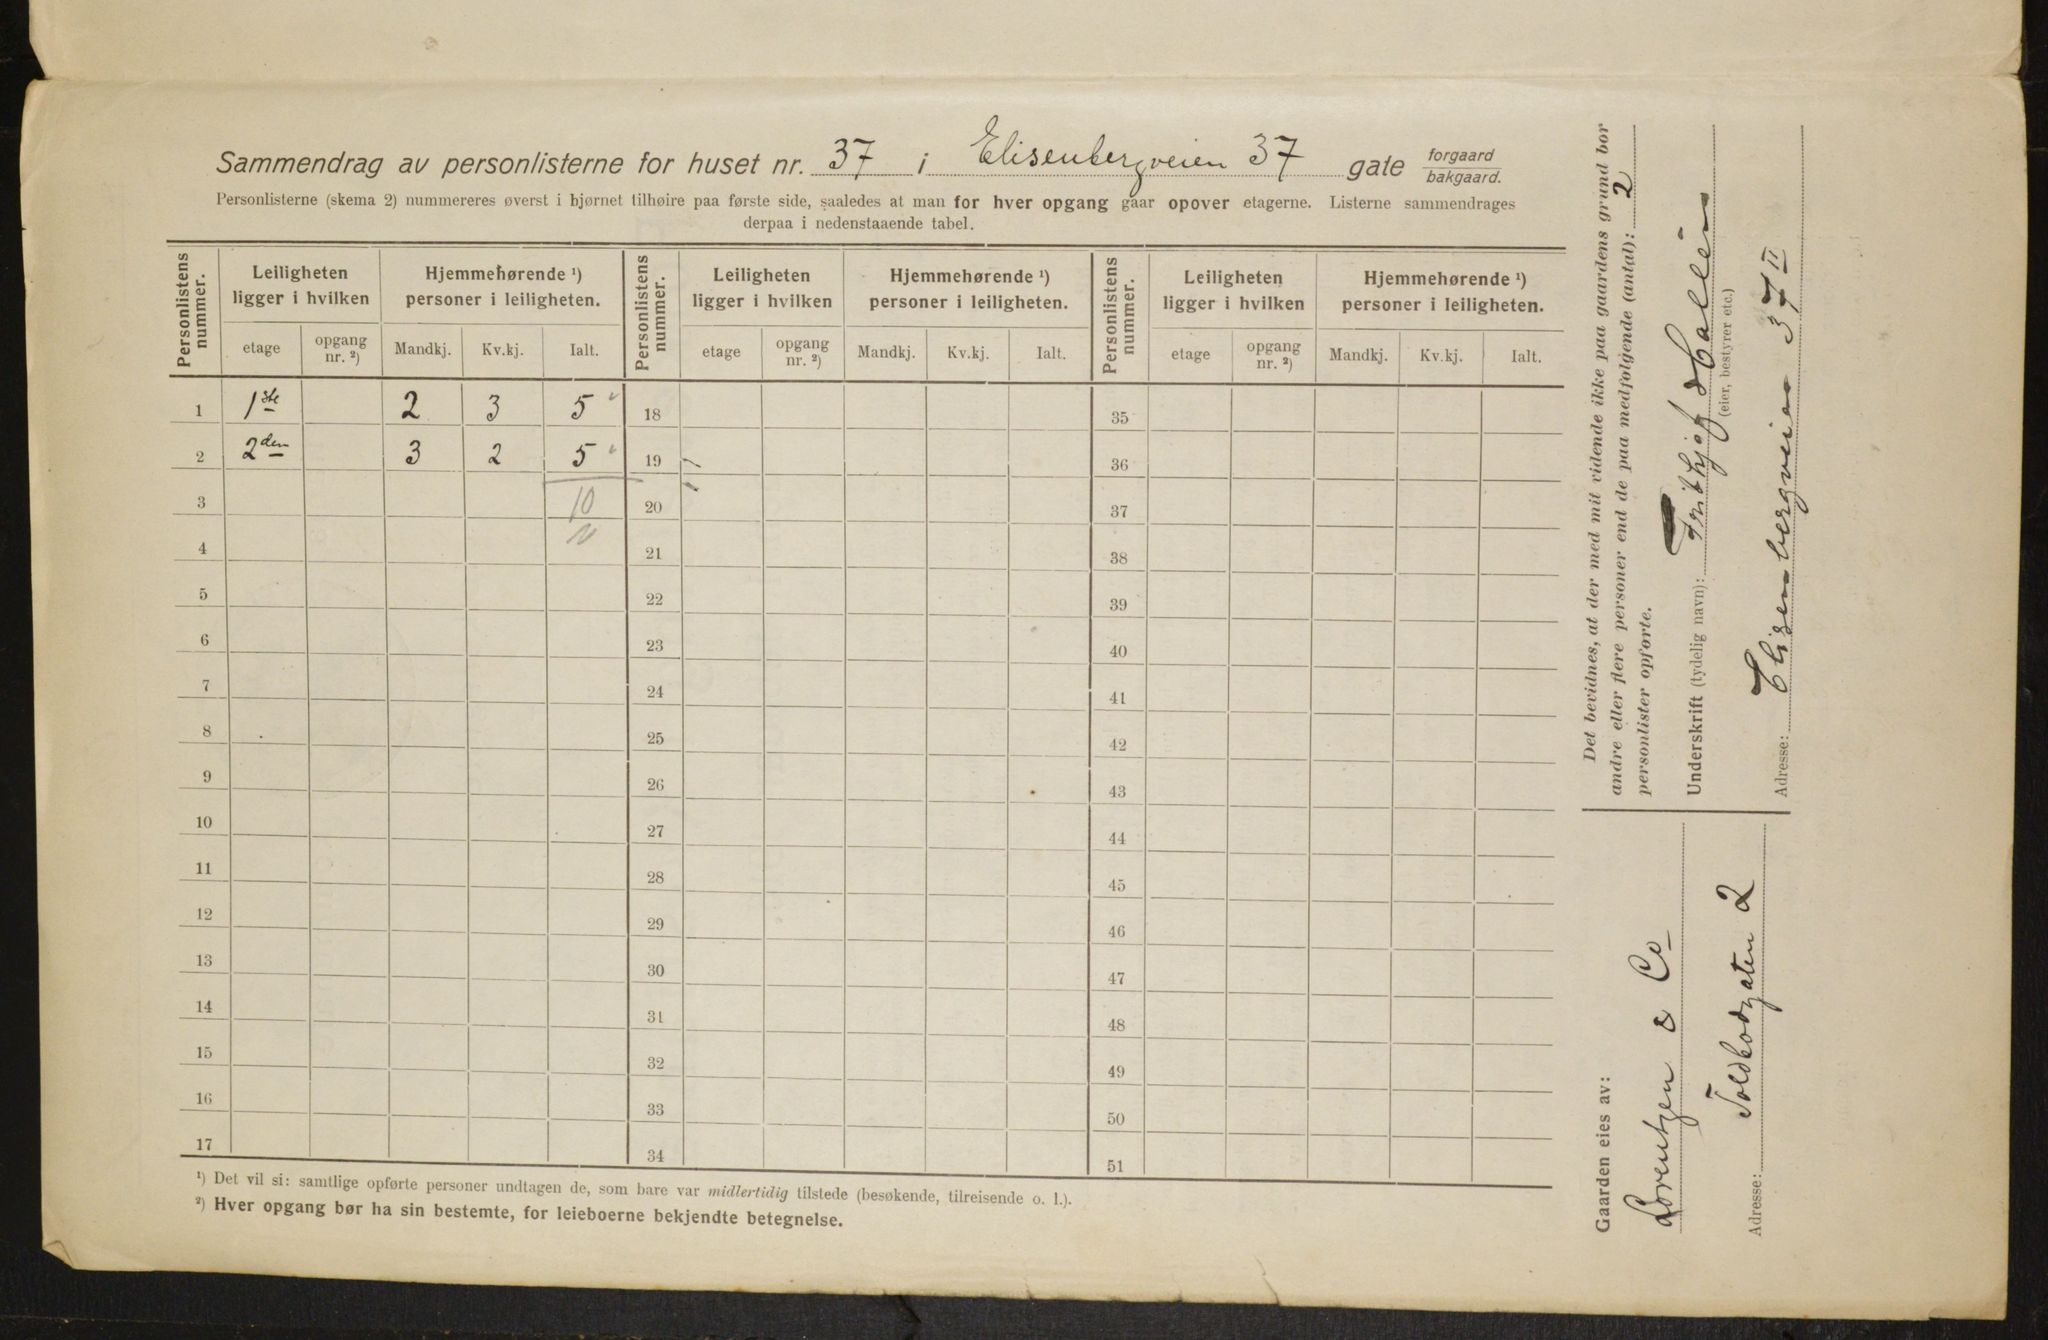 Sammendrag av personlisterne for huset nr. 37 i Elisenbergveien 37 gate forgaard bakgaard.
Personlisterne (skema 2) nummereres øverst i hjørnet tilhøire paa første side, saaledes at man for hver opgang gaar opover etagerne. Listerne sammendrages
derpaa i nedenstaaende tabel.
Personlistens nummer. Leiligheten ligger i hvilken Hjemmehørende ¹) personer i leiligheten. Personlistens nummer. Leiligheten ligger i hvilken Hjemmehørende ¹) personer i leiligheten. Personlistens nummer. Leiligheten ligger i hvilken Hjemmehørende ¹) personer i leiligheten.
etage opgang nr. ²) Mandkj. Kv.kj. Ialt. etage opgang nr. ²) Mandkj. Kv.kj. Ialt. etage opgang nr. ²) Mandkj. Kv.kj. Ialt.
1 1ste 2 3 5 18 35
2 2den 3 2 5 19 36
3 10 20 37
4 21 38
5 22 39
6 23 40
7 24 41
8 25 42
9 26 43
10 27 44
11 28 45
12 29 46
13 30 47
14 31 48
15 32 49
16 33 50
17 34 51
¹) Det vil si: samtlige opførte personer undtagen de, som bare var midlertidig tilstede (besøkende, tilreisende o. l.).
²) Hver opgang bør ha sin bestemte, for leieboerne bekjendte betegnelse.
Det bevidnes, at der med mit vidende ikke paa gaardens grund bor
andre eller flere personer end de paa medfølgende (antal): 2
personlister opførte.
Underskrift (tydelig navn): Frithjof Hallén
(eier, bestyrer etc.)
Adresse: Elisenbergveien 37 II
Gaarden eies av:
Lorentzen & Co
Adresse: Toldbodgaten 2